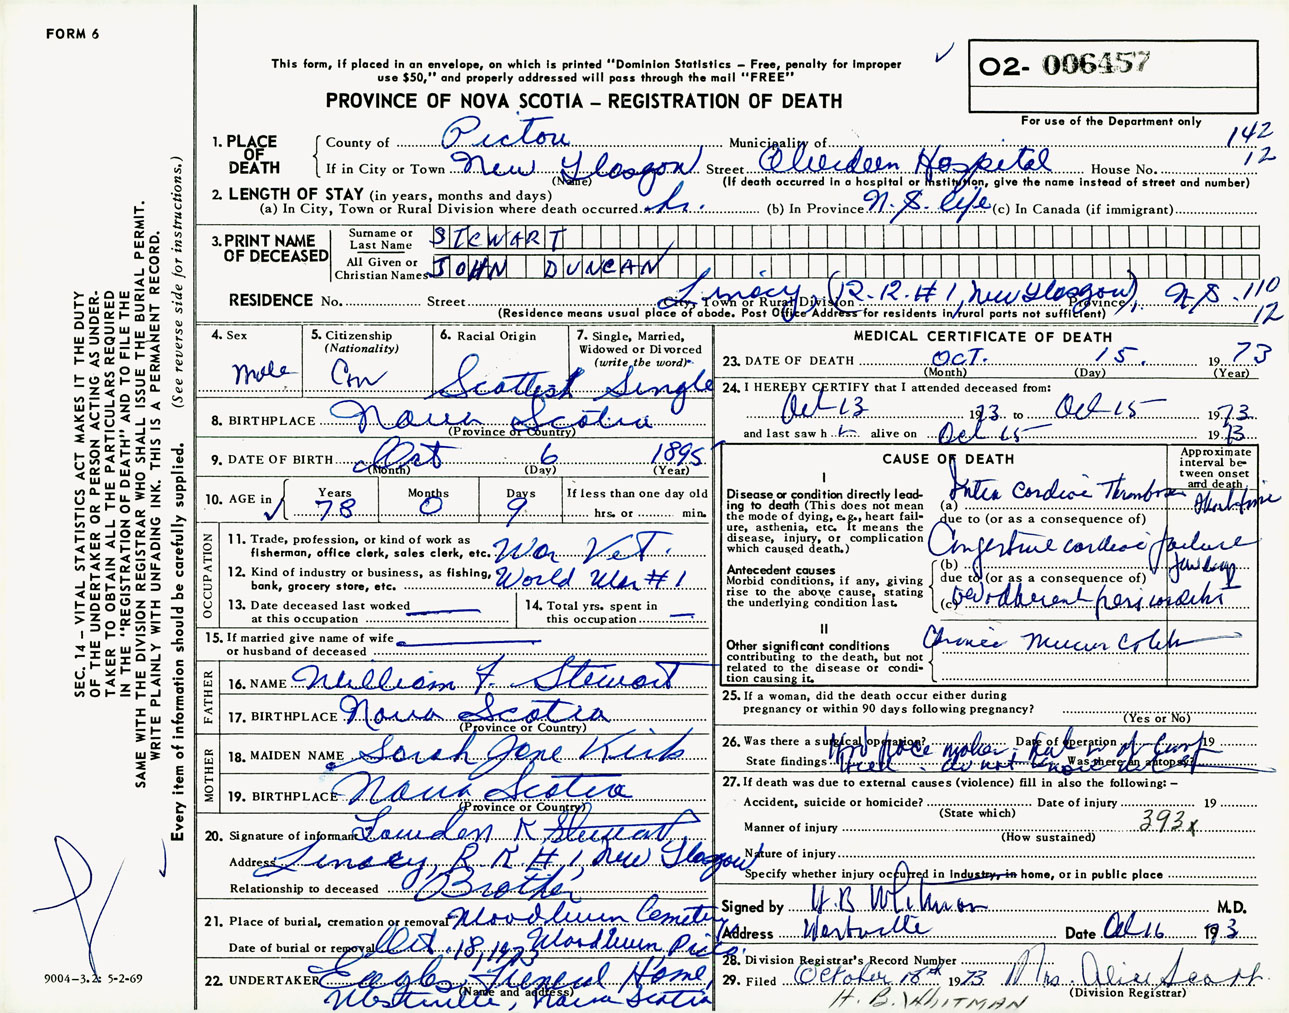 FORM 6
This form, if placed in an envelope, on which is printed "Dominion Statistics – Free, penalty for improper
use $50," and properly addressed will pass through the mail "FREE"
O2- 006457
PROVINCE OF NOVA SCOTIA – REGISTRATION OF DEATH
For use of the Department only
142
12
1. PLACE OF DEATH
County of Pictou Municipality of
If in City or Town New Glasgow Street Aberdeen Hospital House No.
(Name) (If death occurred in a hospital or institution, give the name instead of street and number)
2. LENGTH OF STAY (in years, months and days)
(a) In City, Town or Rural Division where death occurred (b) In Province N.S. life (c) In Canada (if immigrant)
3. PRINT NAME OF DECEASED
Surname or Last Name STEWART
All Given or Christian Names JOHN DUNCAN
RESIDENCE No. Street Linacy, (R.R.#1, New Glasgow), N.S. 110
City, Town or Rural Division Province
(Residence means usual place of abode. Post Office Address for residents in rural parts not sufficient) 12
4. Sex
Male
5. Citizenship
(Nationality)
Cdn
6. Racial Origin
Scottish
7. Single, Married,
Widowed or Divorced
(write the word)
Single
8. BIRTHPLACE Nova Scotia
(Province or Country)
9. DATE OF BIRTH Oct 6 1895
(Month) (Day) (Year)
10. AGE in
Years Months Days If less than one day old
78 0 9 hrs. or min.
OCCUPATION
11. Trade, profession, or kind of work as
fisherman, office clerk, sales clerk, etc. War Vet.
12. Kind of industry or business, as fishing,
bank, grocery store, etc. World War #1
13. Date deceased last worked
at this occupation
14. Total yrs. spent in
this occupation
15. If married give name of wife
or husband of deceased
FATHER
16. NAME William F. Stewart
17. BIRTHPLACE Nova Scotia
(Province or Country)
MOTHER
18. MAIDEN NAME Sarah Jane Kirk
19. BIRTHPLACE Nova Scotia
(Province or Country)
20. Signature of informant Lowden K Stewart
Address Linacy, R.R.#1, New Glasgow
Relationship to deceased Brother
21. Place of burial, cremation or removal Woodburn Cemetery
Date of burial or removal Oct 18, 1973 Woodburn Pic.
22. UNDERTAKER Eagles Funeral Home,
(Name and address)
Westville, Nova Scotia
MEDICAL CERTIFICATE OF DEATH
23. DATE OF DEATH OCT. 15. 1973
(Month) (Day) (Year)
24. I HEREBY CERTIFY that I attended deceased from:
Oct 13 1973 to Oct 15 1973
and last saw h alive on Oct 15 1973
CAUSE OF DEATH
Approximate
interval be-
tween onset
and death
I
Disease or condition directly lead-
ing to death (This does not mean
the mode of dying, e.g., heart fail-
ure, asthenia, etc. It means the
disease, injury, or complication
which caused death.)
(a) Intra cardiac Thrombosis Short time
due to (or as a consequence of)
(b) Congestive cardiac failure
due to (or as a consequence of)
(c) adherent pericarditis
Antecedent causes
Morbid conditions, if any, giving
rise to the above cause, stating
the underlying condition last.
II
Other significant conditions
contributing to the death, but not
related to the disease or condi-
tion causing it.
Chronic Mucus Colitis
25. If a woman, did the death occur either during
pregnancy or within 90 days following pregnancy?
(Yes or No)
26. Was there a surgical operation? Date of operation 19
State findings Was there an autopsy?
Had pace maker
do not know
27. If death was due to external causes (violence) fill in also the following: –
Accident, suicide or homicide? Date of injury 19
(State which)
Manner of injury 393x
(How sustained)
Nature of injury
Specify whether injury occurred in industry, in home, or in public place
Signed by H. B. Whitman M.D.
Address Westville Date Oct 16 1973
28. Division Registrar's Record Number
29. Filed October 18th 1973 Mrs. Alice Scott
(Division Registrar)
H. B. WHITMAN
SEC. 14 – VITAL STATISTICS ACT MAKES IT THE DUTY
OF THE UNDERTAKER OR PERSON ACTING AS UNDER-
TAKER TO OBTAIN ALL THE PARTICULARS REQUIRED
IN THE "REGISTRATION OF DEATH" AND TO FILE THE
SAME WITH THE DIVISION REGISTRAR WHO SHALL ISSUE THE BURIAL PERMIT.
WRITE PLAINLY WITH UNFADING INK. THIS IS A PERMANENT RECORD.
Every item of information should be carefully supplied. (See reverse side for instructions.)
9004–3.2: 5-2-69